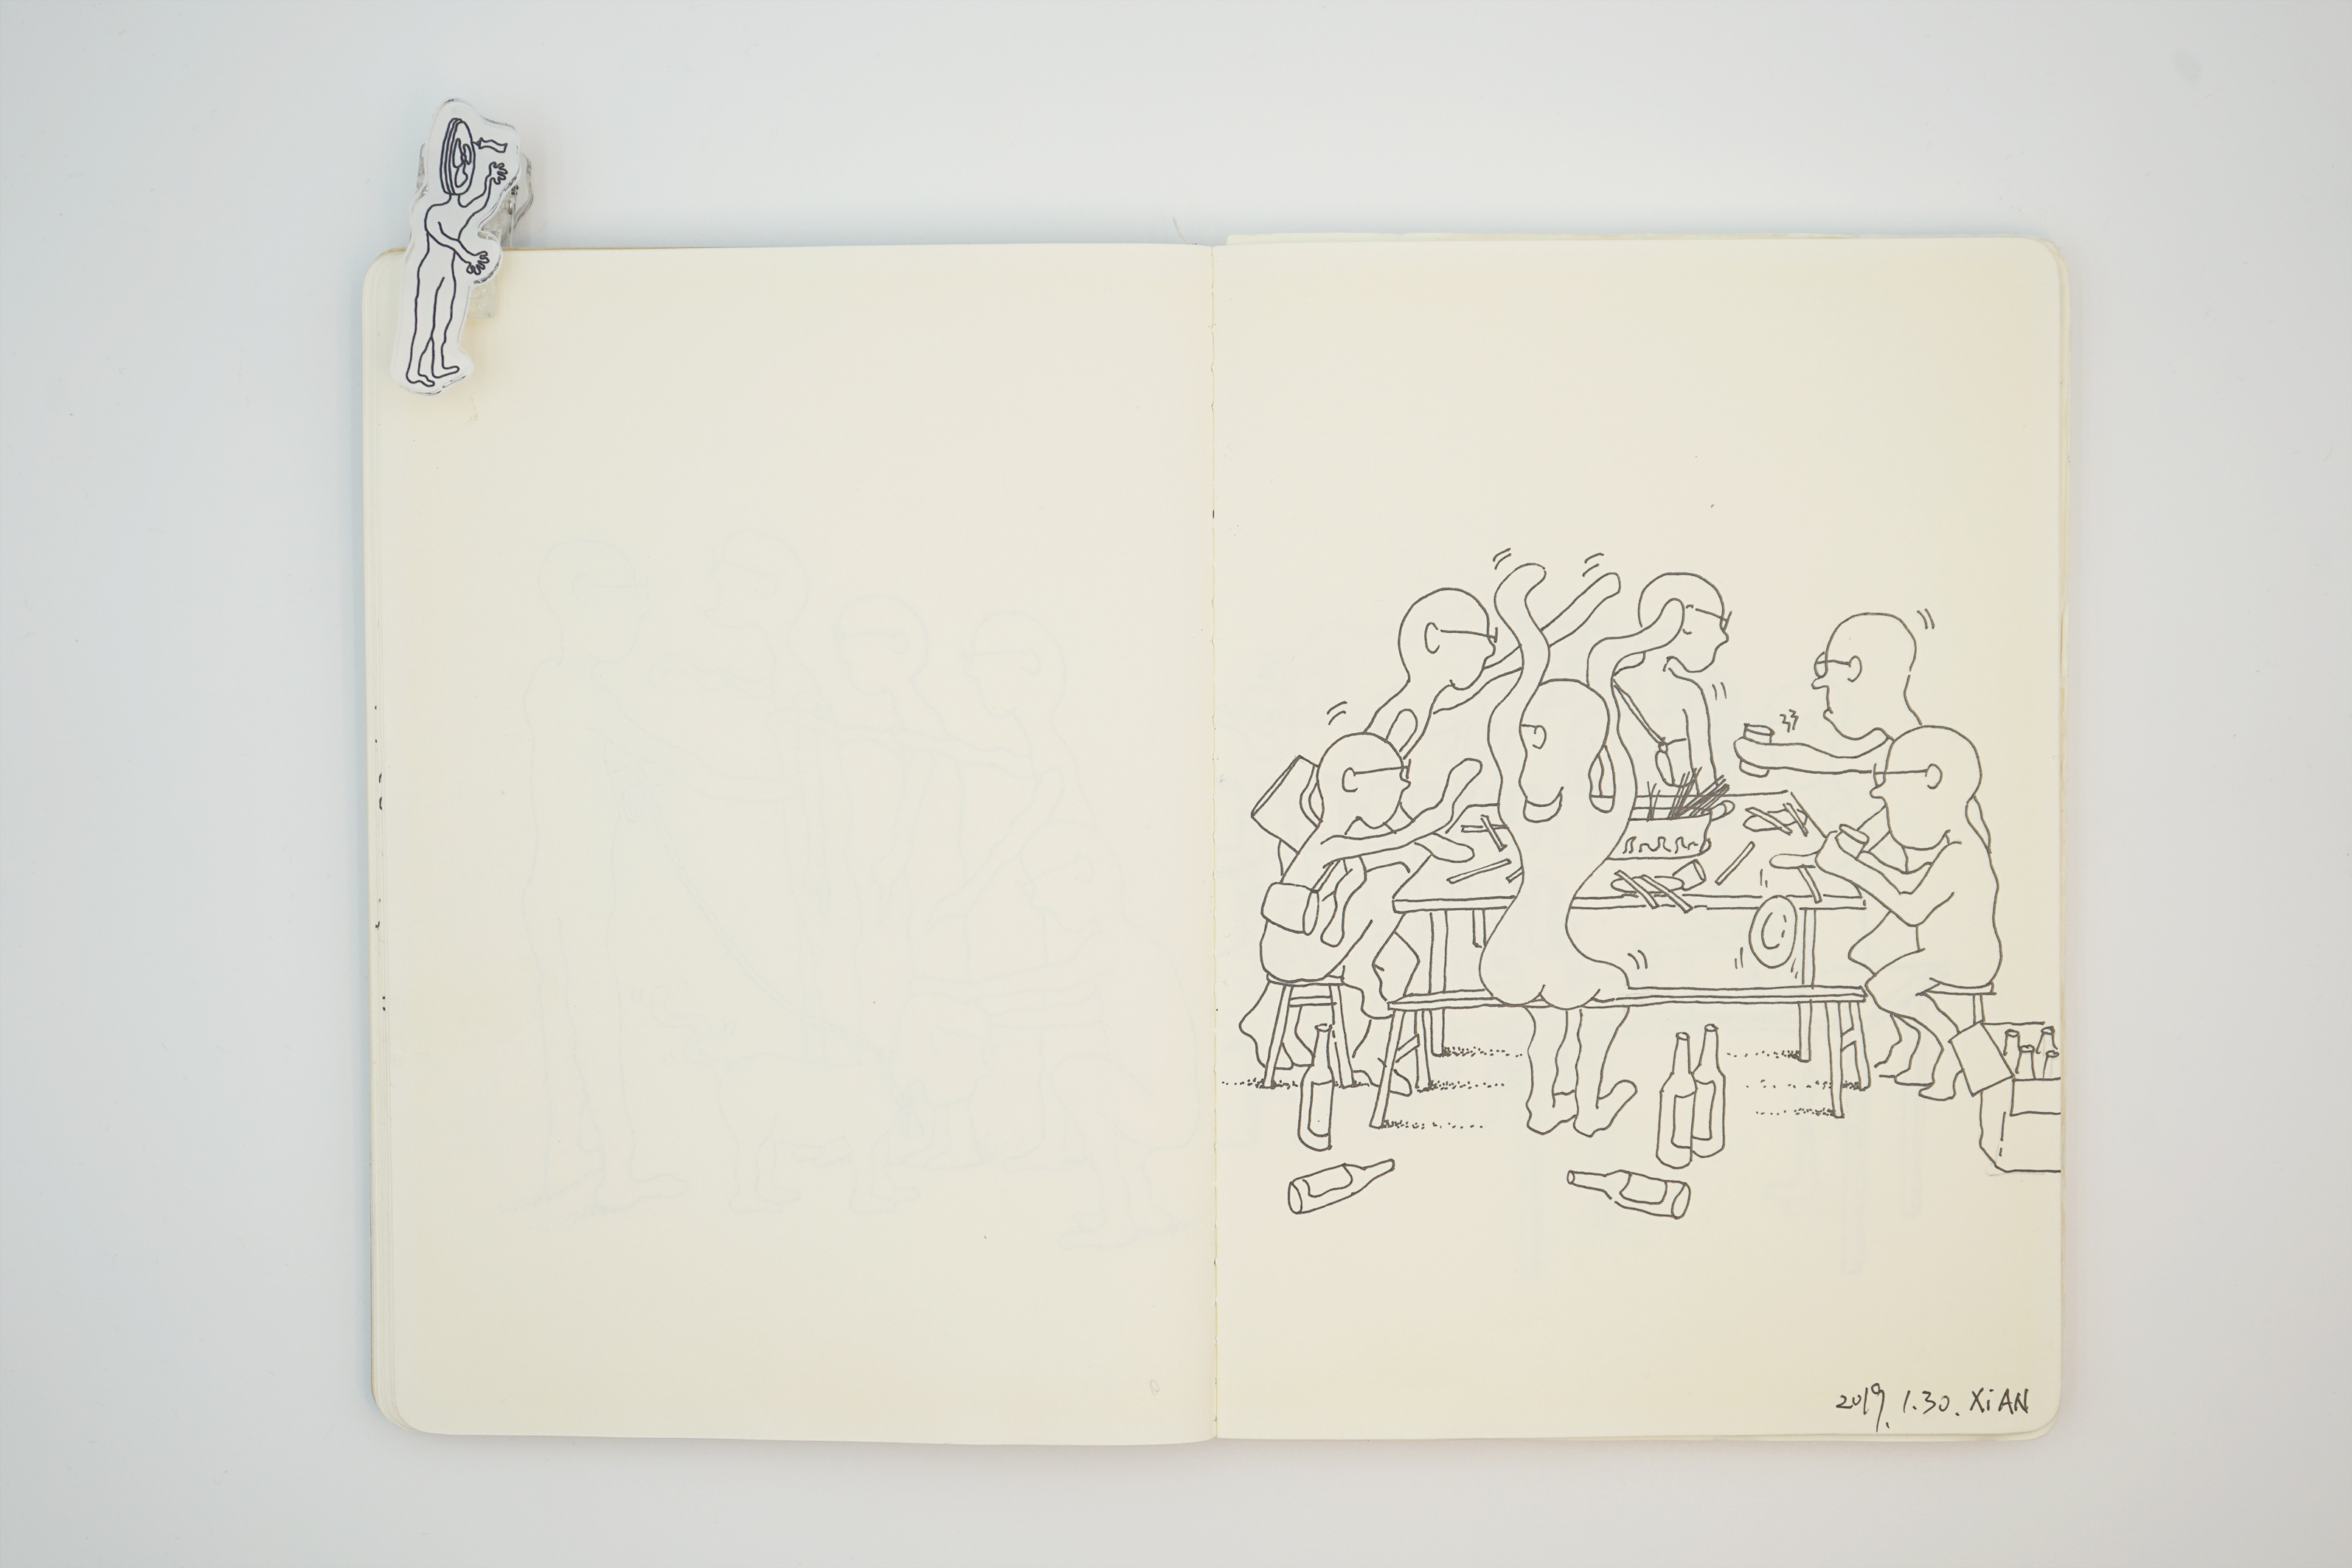 2019. 1.30. XiAN